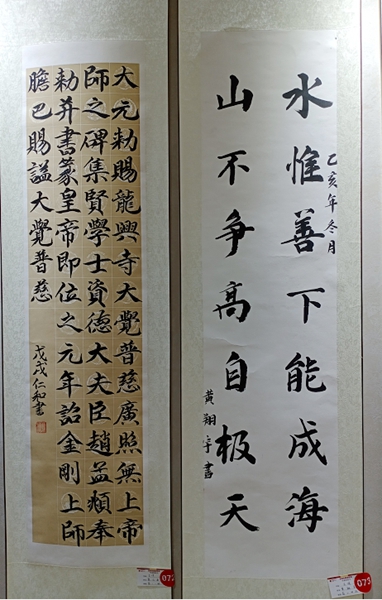 水惟善下能成海
己亥年冬月
山不争高自极天
黄翔宇書
大元勅賜龍興寺大覺普慈廣照無上帝
師之碑集賢學士資德大夫臣趙孟頫奉
勅并書篆皇帝即位之元年詔金剛上師
膽巴賜謚大覺普慈
戊戌仁和書
072
073